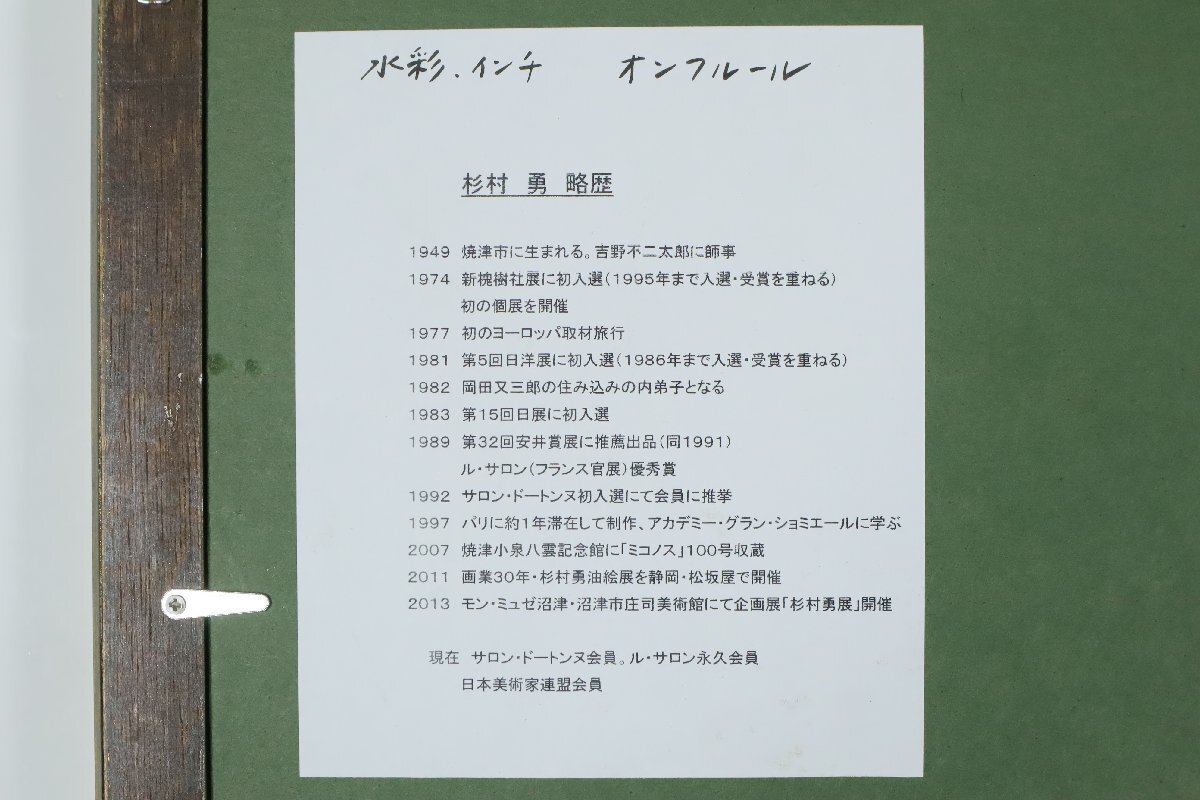 水彩.インチ　　オンフルール
杉村　勇　略歴
1949 焼津市に生まれる。吉野不二太郎に師事
1974 新槐樹社展に初入選（1995年まで入選・受賞を重ねる）
初の個展を開催
1977 初のヨーロッパ取材旅行
1981 第5回日洋展に初入選（1986年まで入選・受賞を重ねる）
1982 岡田又三郎の住み込みの内弟子となる
1983 第15回日展に初入選
1989 第32回安井賞展に推薦出品（同1991）
ル・サロン（フランス官展）優秀賞
1992 サロン・ドートンヌ初入選にて会員に推挙
1997 パリに約1年滞在して制作、アカデミー・グラン・ショミエールに学ぶ
2007 焼津小泉八雲記念館に「ミコノス」100号収蔵
2011 画業30年・杉村勇油絵展を静岡・松坂屋で開催
2013 モン・ミュゼ沼津・沼津市庄司美術館にて企画展「杉村勇展」開催
現在　サロン・ドートンヌ会員。ル・サロン永久会員
日本美術家連盟会員